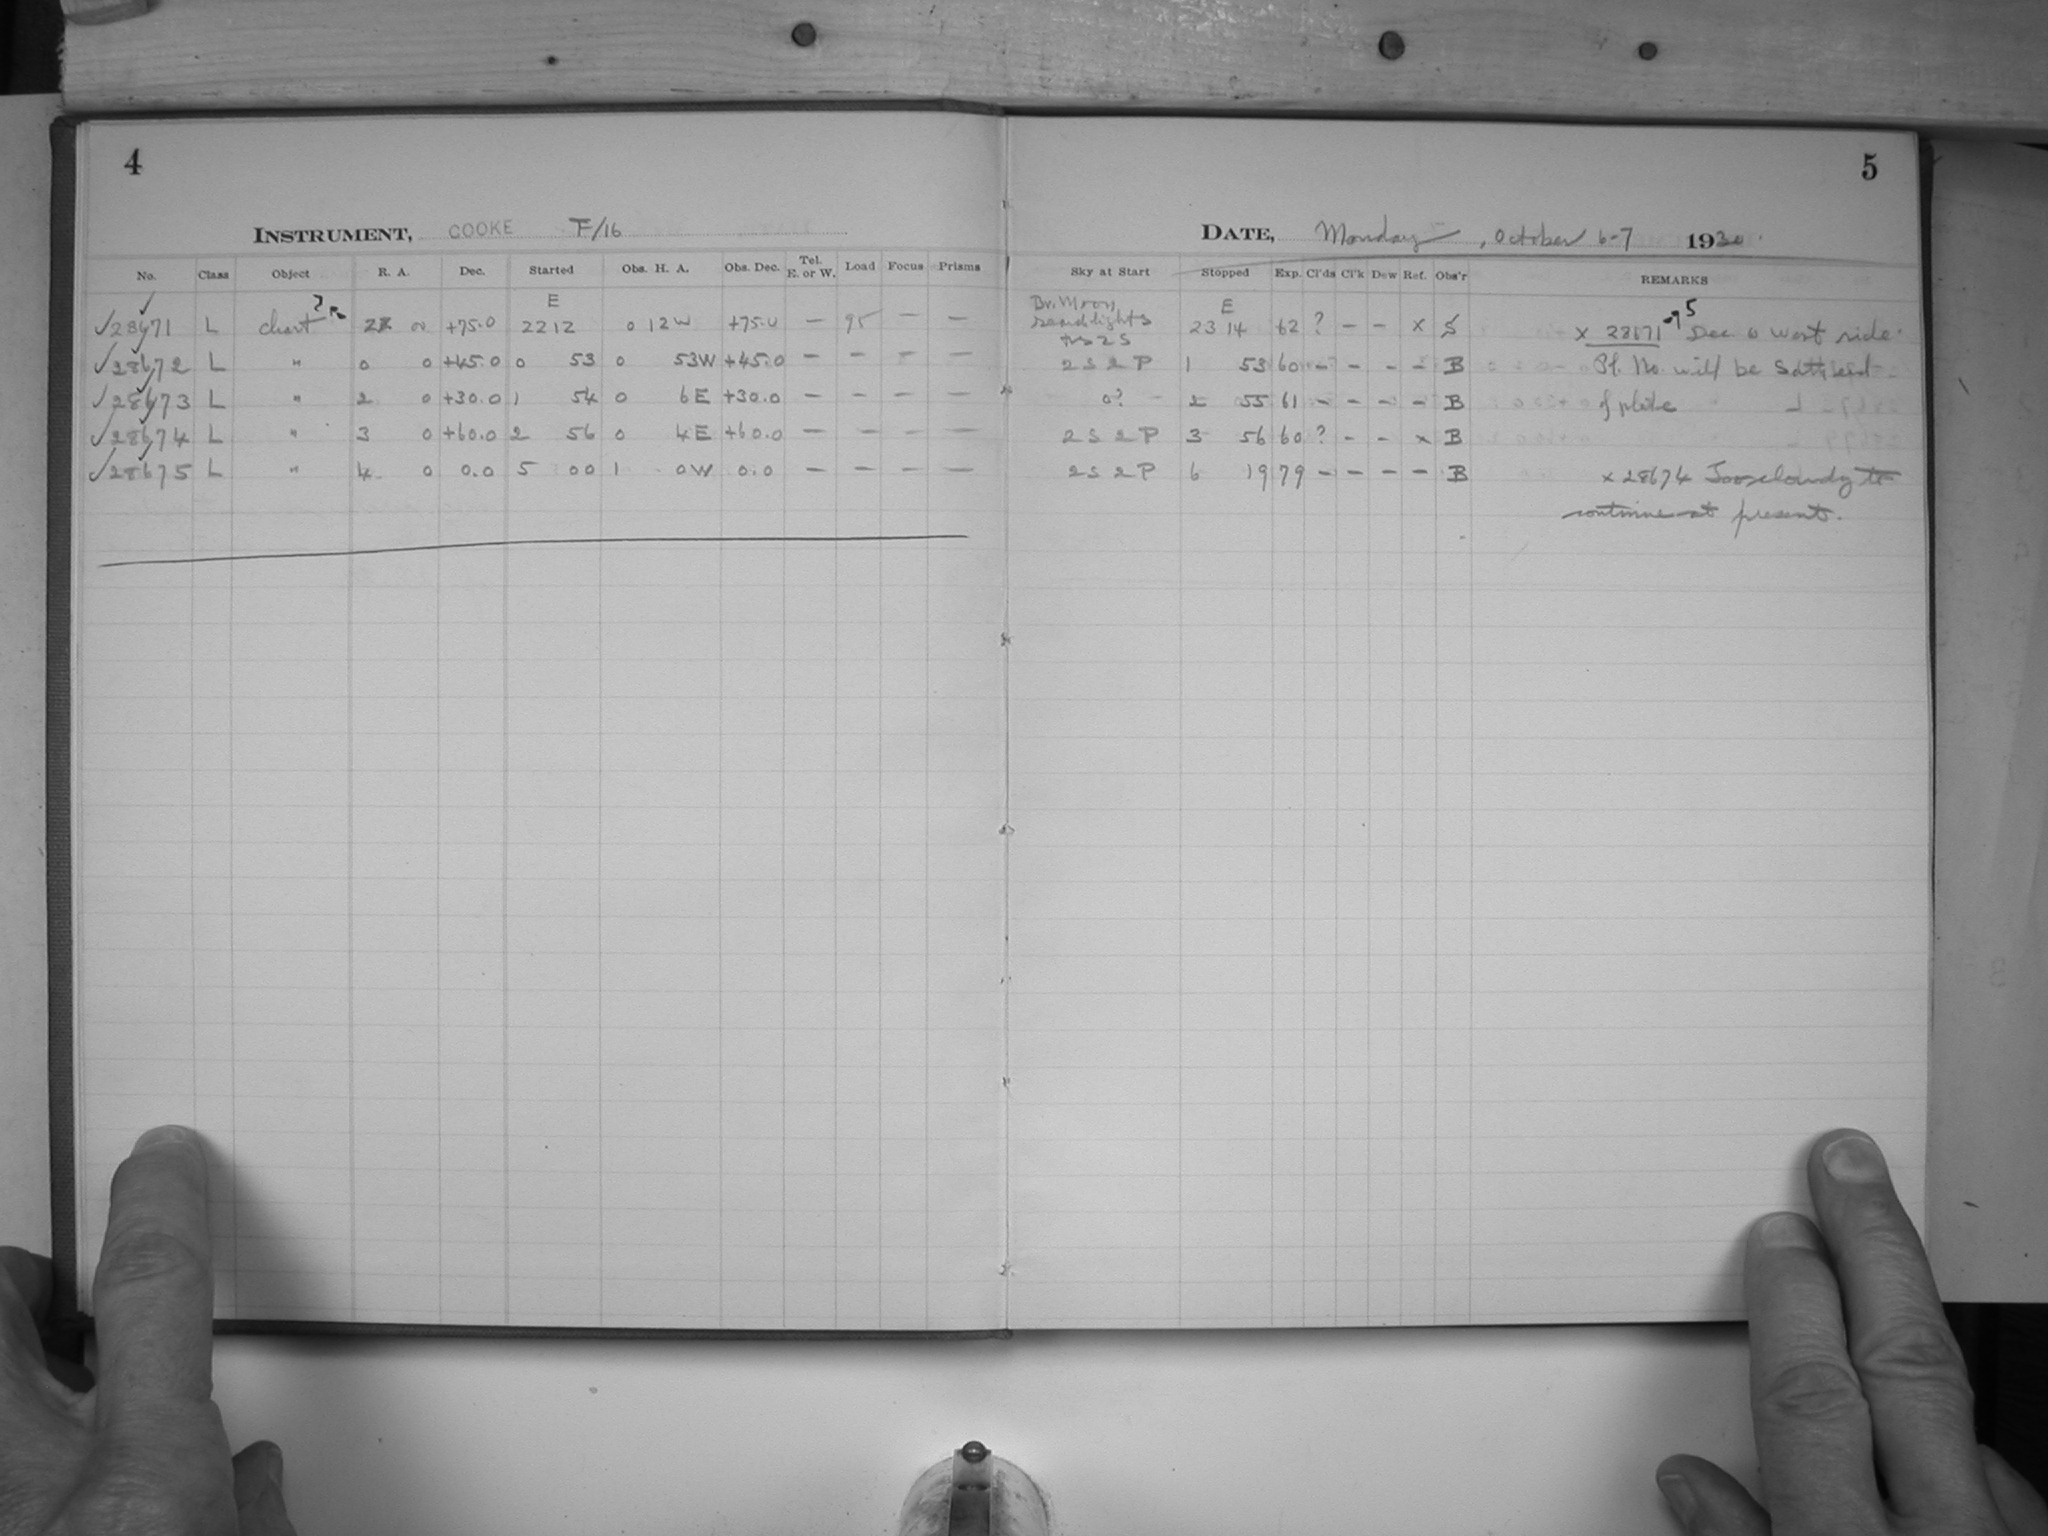 4
INSTRUMENT, COOKE F/16
No. Class Object R. A. Dec. Started Obs. H. A. Obs. Dec. Tel. E. or W. Load Focus Prisms
E
28671 L chart ? +75.0 22 12 0 12W +75.0 — 95 — —
28672 L " 0 0 +45.0 0 53 0 53W +45.0 — — — —
28673 L " 2 0 +30.0 1 54 0 6E +30.0 — — — —
28674 L " 3 0 +60.0 2 56 0 4E +60.0 — — — —
28675 L " 4 0 0.0 5 00 1 0W 0.0 — — — —
5
DATE, Monday, October 6-7 1930.
Sky at Start Stopped Exp. Cl'ds Cl'k Dew Ref. Obs'r REMARKS
Br. Moon
searchlights E
2S 23 14 62 ? – – x S x 28671 Dec. 0 West side.
2S 2P 1 53 60 – – – – B Pl. No. will be
0? 2 55 61 – – – – B of plate
2S 2P 3 56 60 ? – – x B
2S 2P 6 19 79 – – – – B x 28674 Too cloudy to
continue at present.